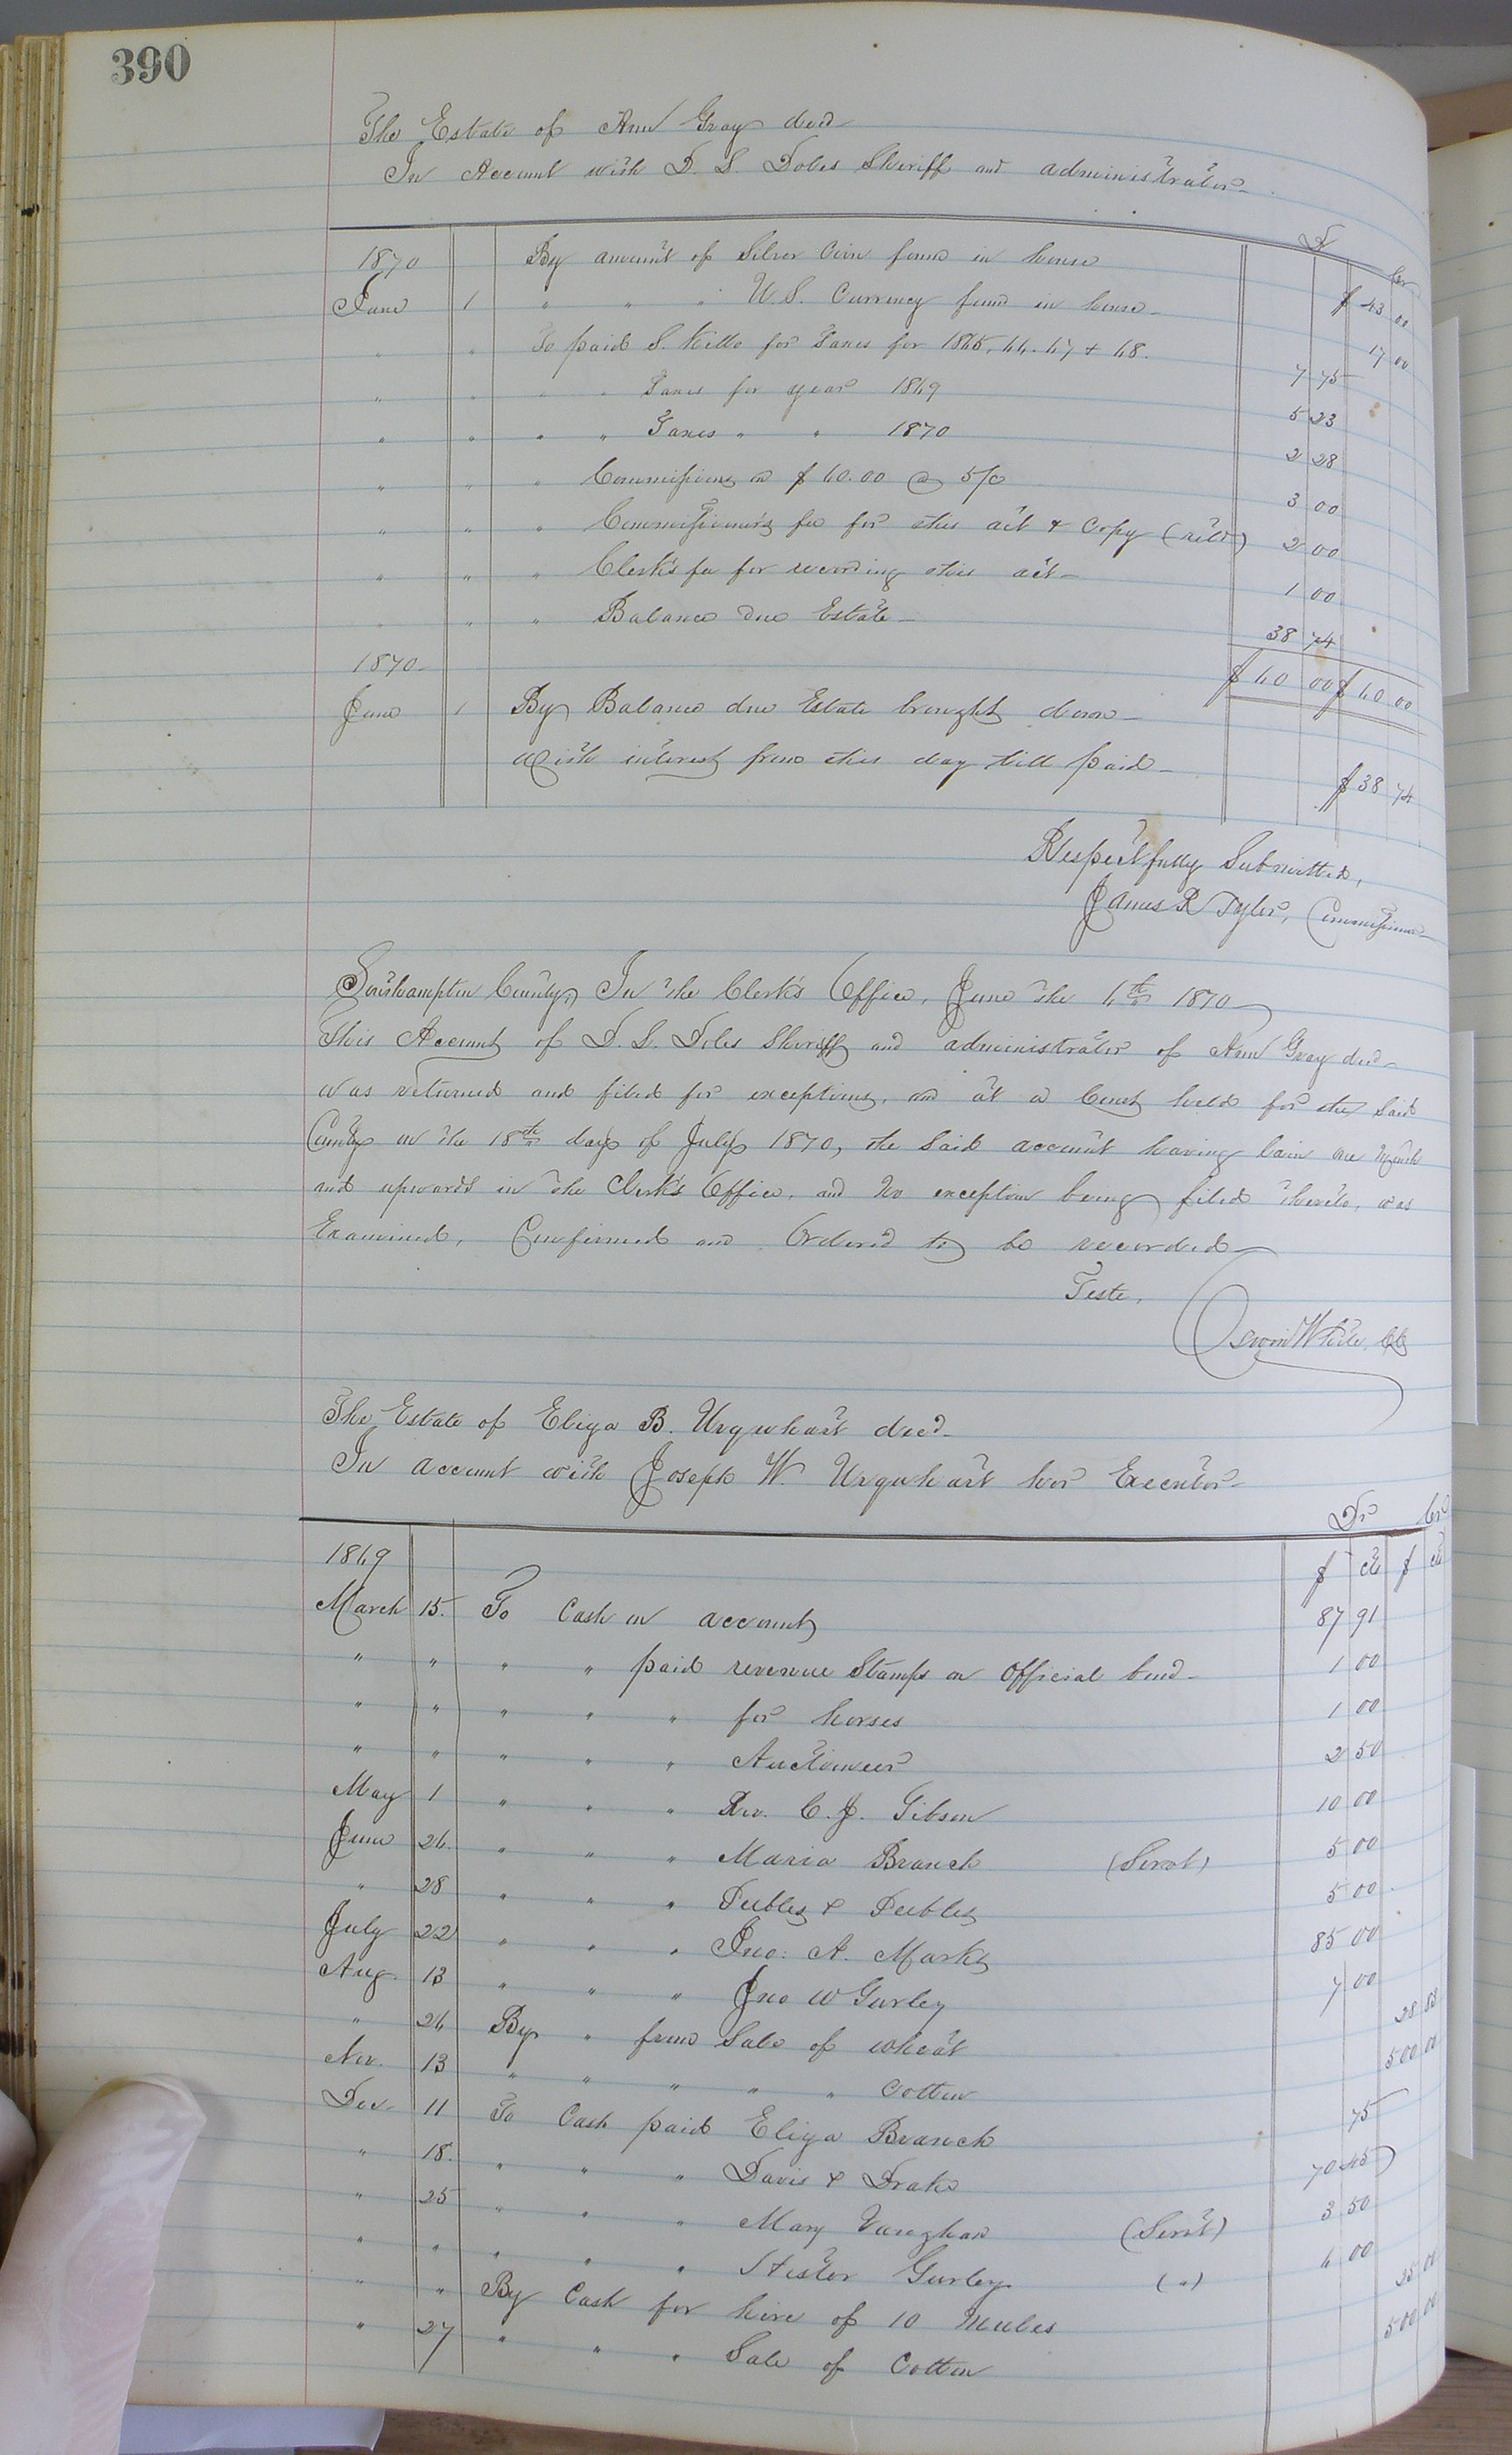 390
The Estate of Ann Gray decd
In Account with D. S. Doles Sheriff and administrator
Dr Cr
1870 By amount of Silver Coin found in house $ 43 00
June 1 " " " U.S. Currency found in house 17 00
" " To paid S. Kello for Taxes for 1865, 66. 67 & 68. 7 75
" " " " Taxes for year 1869 5 23
" " " " Taxes " " 1870 2 28
" " " Commissions on $ 60.00 @ 5/0 3 00
" " " Commissioner's fee for this act & Copy 2 00
" " " Clerk's fee for recording this act 1 00
" " " Balance due Estate 38 74
1870 $ 60 00 $ 60 00
June 1 By Balance due Estate brought down
with interest from this day till paid $ 38 74
Respectfully Submitted,
James R Tyler, Commissioner
Southampton County, In the Clerk's Office, June the 6th 1870
This Account of D. S. Doles Sheriff and administrator of Ann Gray decd
was returned and filed for exceptions, and at a Court held for the said
County on the 18th day of July 1870, the said account having lain one Month
and upwards in the Clerk's Office, and no exception being filed thereto, was
Examined, Confirmed and Ordered to be recorded
Teste,
White, CC
The Estate of Eliza B. Urquhart decd
In account with Joseph W. Urquhart her Executor
Dr Cr
1869 $ cts $ cts
March 15. To Cash on account 87 91
" " " " paid revenue Stamps on Official bond 1 00
" " " " " for horses 1 00
" " " " " Auctioneer 2 50
May 1 " " " Rev. C. J. Gibson 10 00
June 26. " " " Maria Branch (Servt) 5 00
" 28 " " " Peebles & Peebles 5 00
July 22 " " " Jno: A. Marks 85 00
Aug. 13 " " " Jno W Gurley 7 00
" 26 By " from Sale of wheat 28 88
Nov. 13 " " " " " Cotton 500 00
Dec. 11 To Cash paid Eliza Branch 75
" 18. " " " Davis & Drake 70 45
" 25 " " " Mary Vaughan (Servt) 3 50
" " " " " Hester Gurley (") 6 00
" " By Cash for hire of 10 Mules 25 00
" 27 " " " Sale of Cotton 500 00